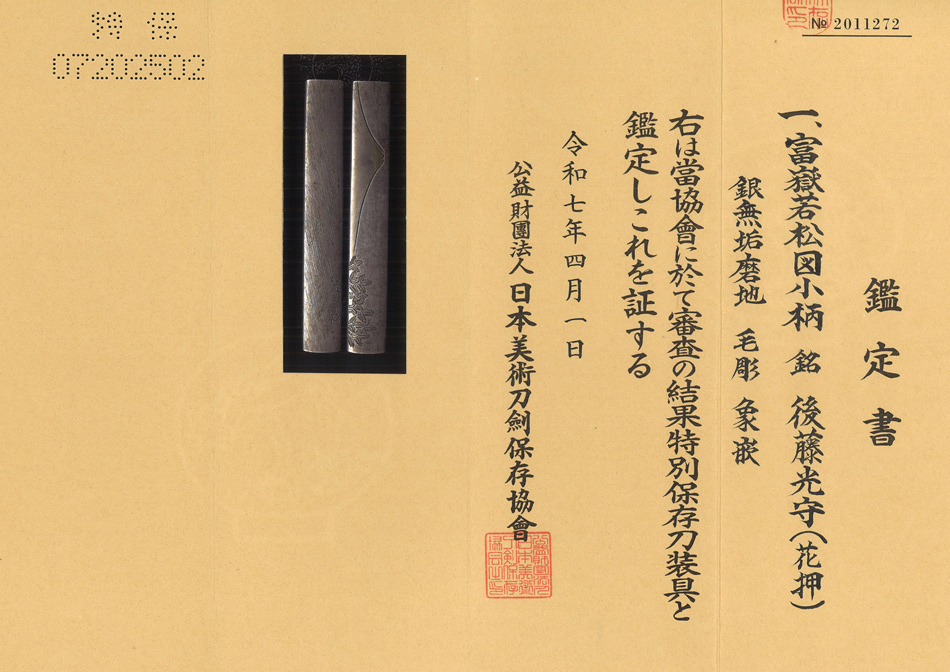 № 2011272
鑑定書
一、富嶽若松図小柄 銘 後藤光守(花押)
銀無垢磨地 毛彫 象嵌
右は當協會に於て審査の結果特別保存刀装具と
鑑定しこれを証する
令和七年四月一日
公益財團法人 日本美術刀劍保存協會
特保
07202502